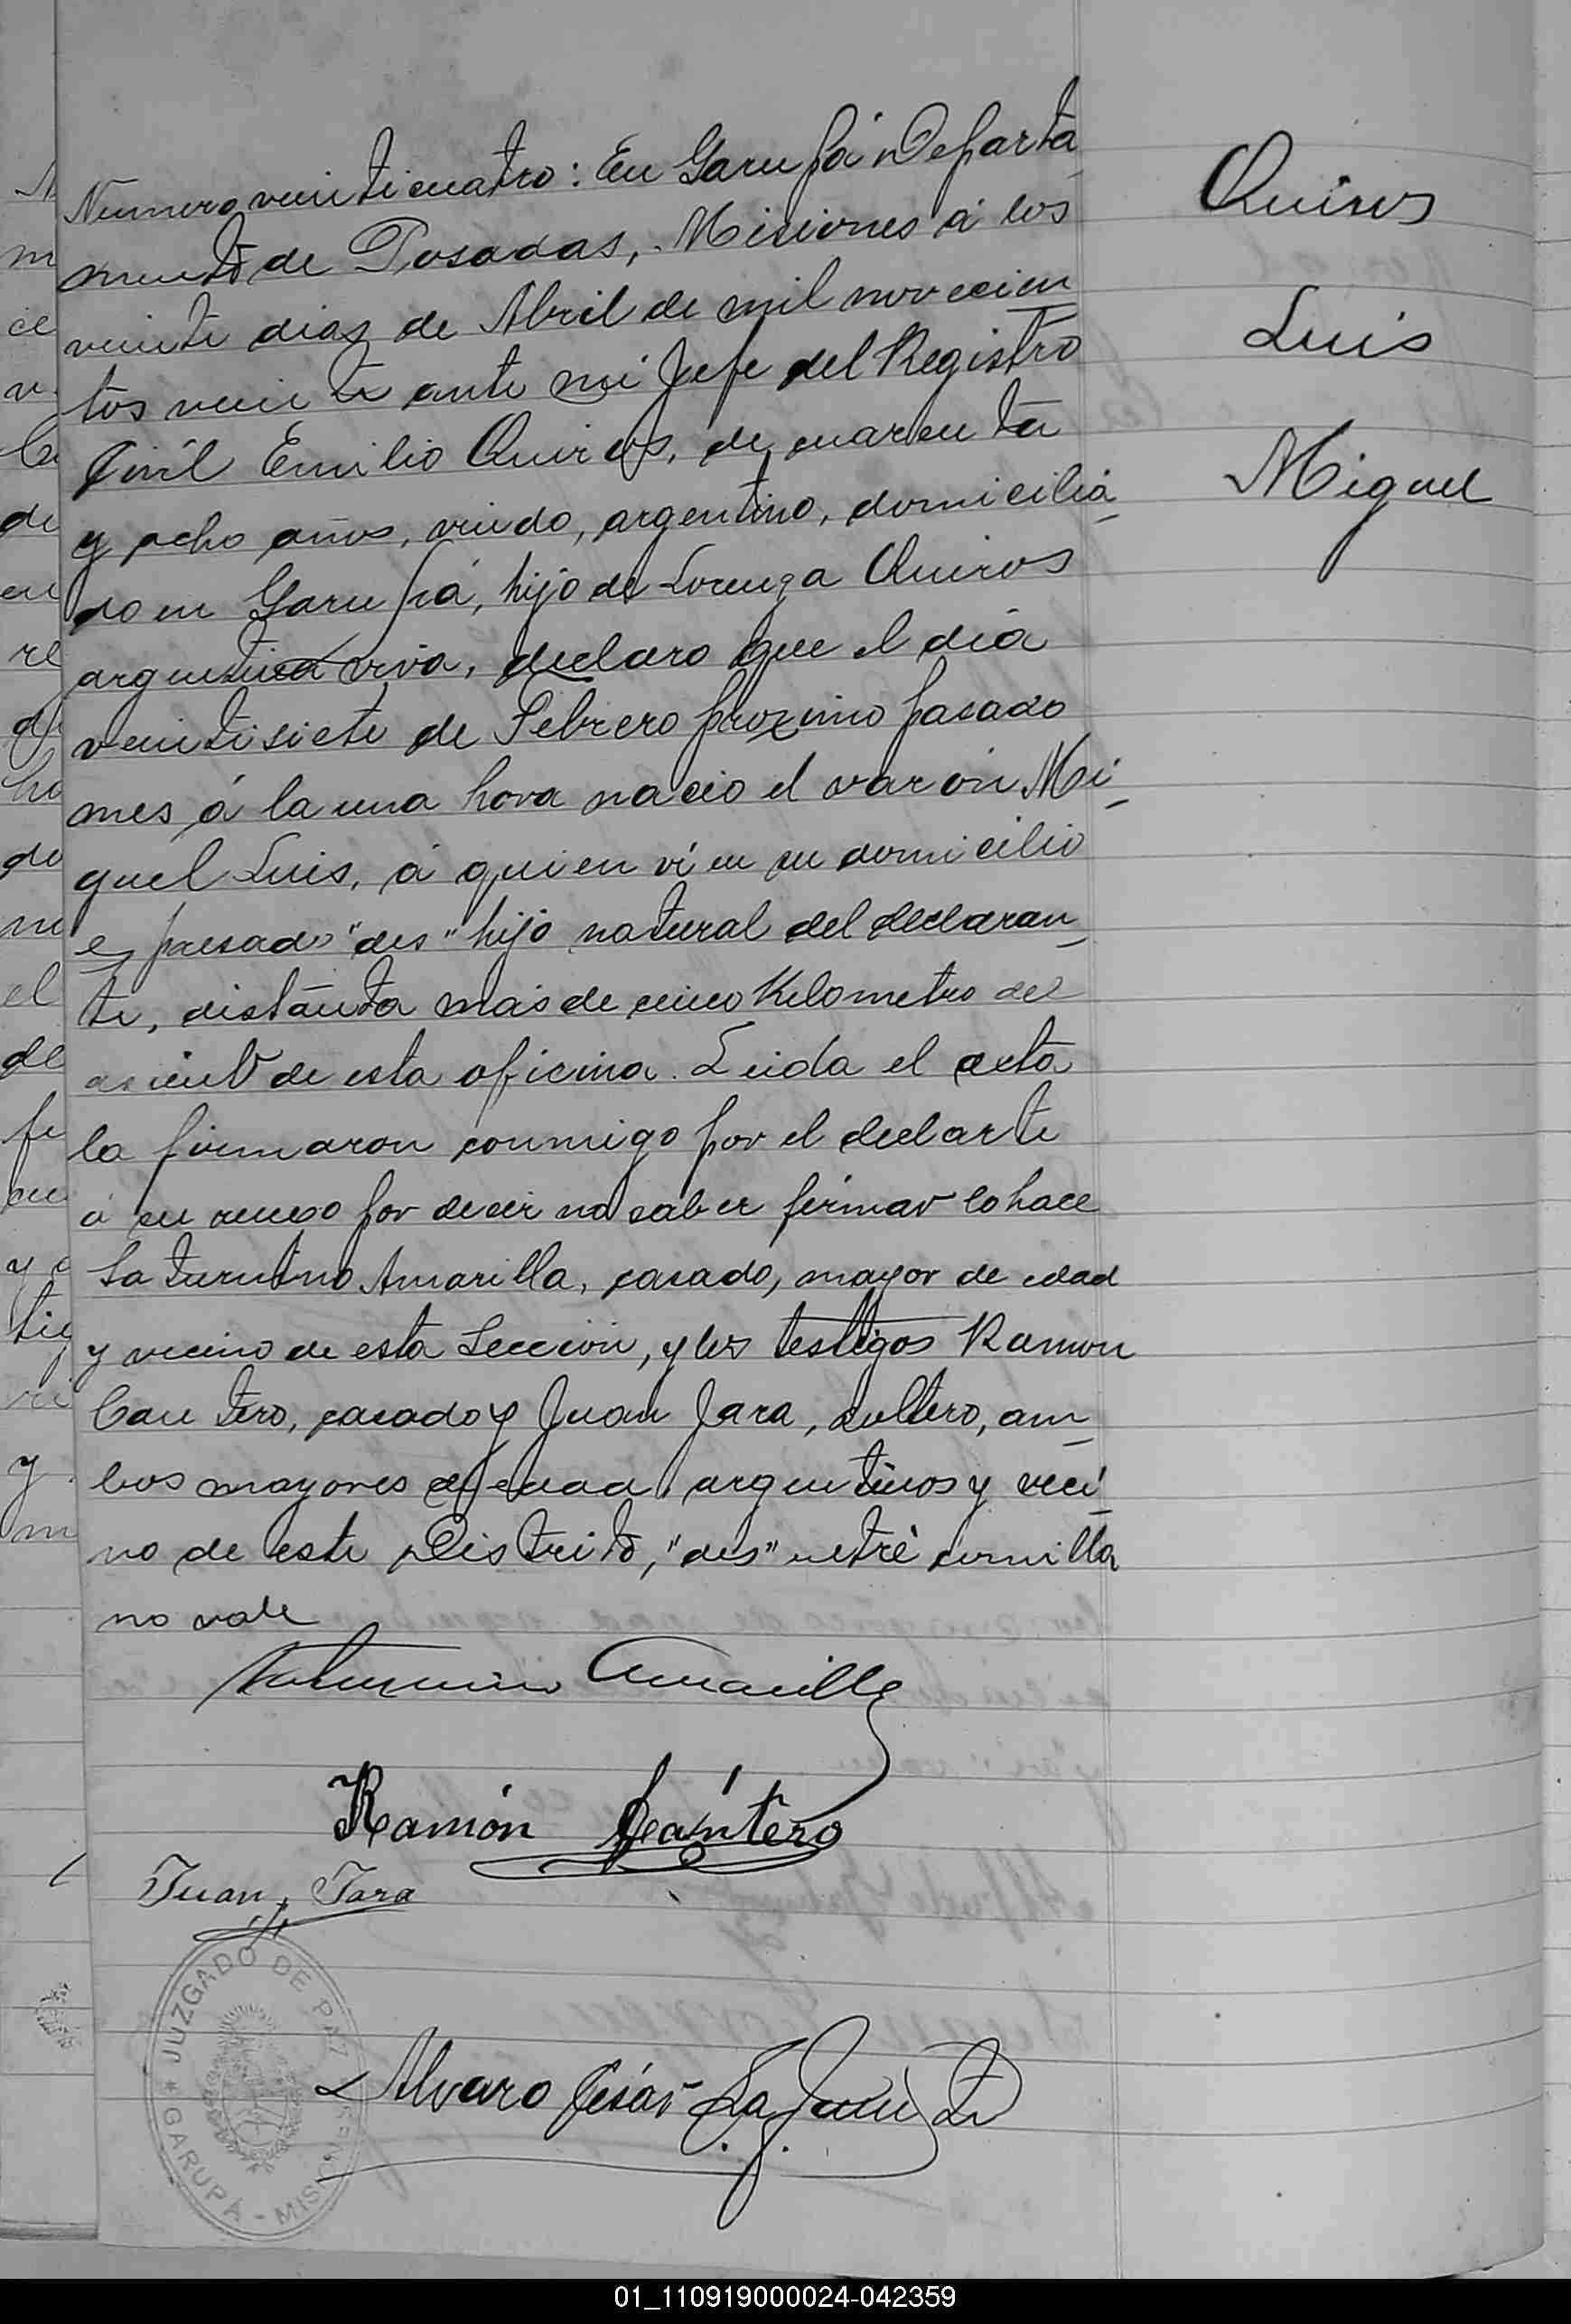 Numero veinticuatro: En Garupá Departa
mento de Posadas, Misiones á los
veinte dias de Abril de mil novecien
tos veinte ante mi Jefe del Registro
Civil Emilio Quiros, de cuarenta
y ocho años, viudo, argentino, domicilia
do en Garupá, hijo de Lorenza Quiros
argentina viva, declaro que el dia
veintisiete de Febrero proximo pasado
mes á la una hora nacio el varon Mi
guel Luis, á quien ví en su domicilio
expresado "des" hijo natural del declaran
te, distanta mas de cinco Kilometro del
asiento de esta oficina. Leida el acta
la firmaron conmigo por el declarte
á su ruego por decir no saber firmar lo hace
Saturnino Amarilla, casado, mayor de edad
y vecino de esta Sección, y los testigos Ramon
Cantero, casado y Juan Jara, soltero, am
bos mayores de edad argentinos y veci
no de este Distrito, "des" entre comilla
no vale
Saturnino Amarilla
Ramón Cántero
Juan Jara
Alvaro César
Quiros
Luis
Miguel
JUZGADO DE PAZ
GARUPÁ - MISIONES
01_110919000024-042359